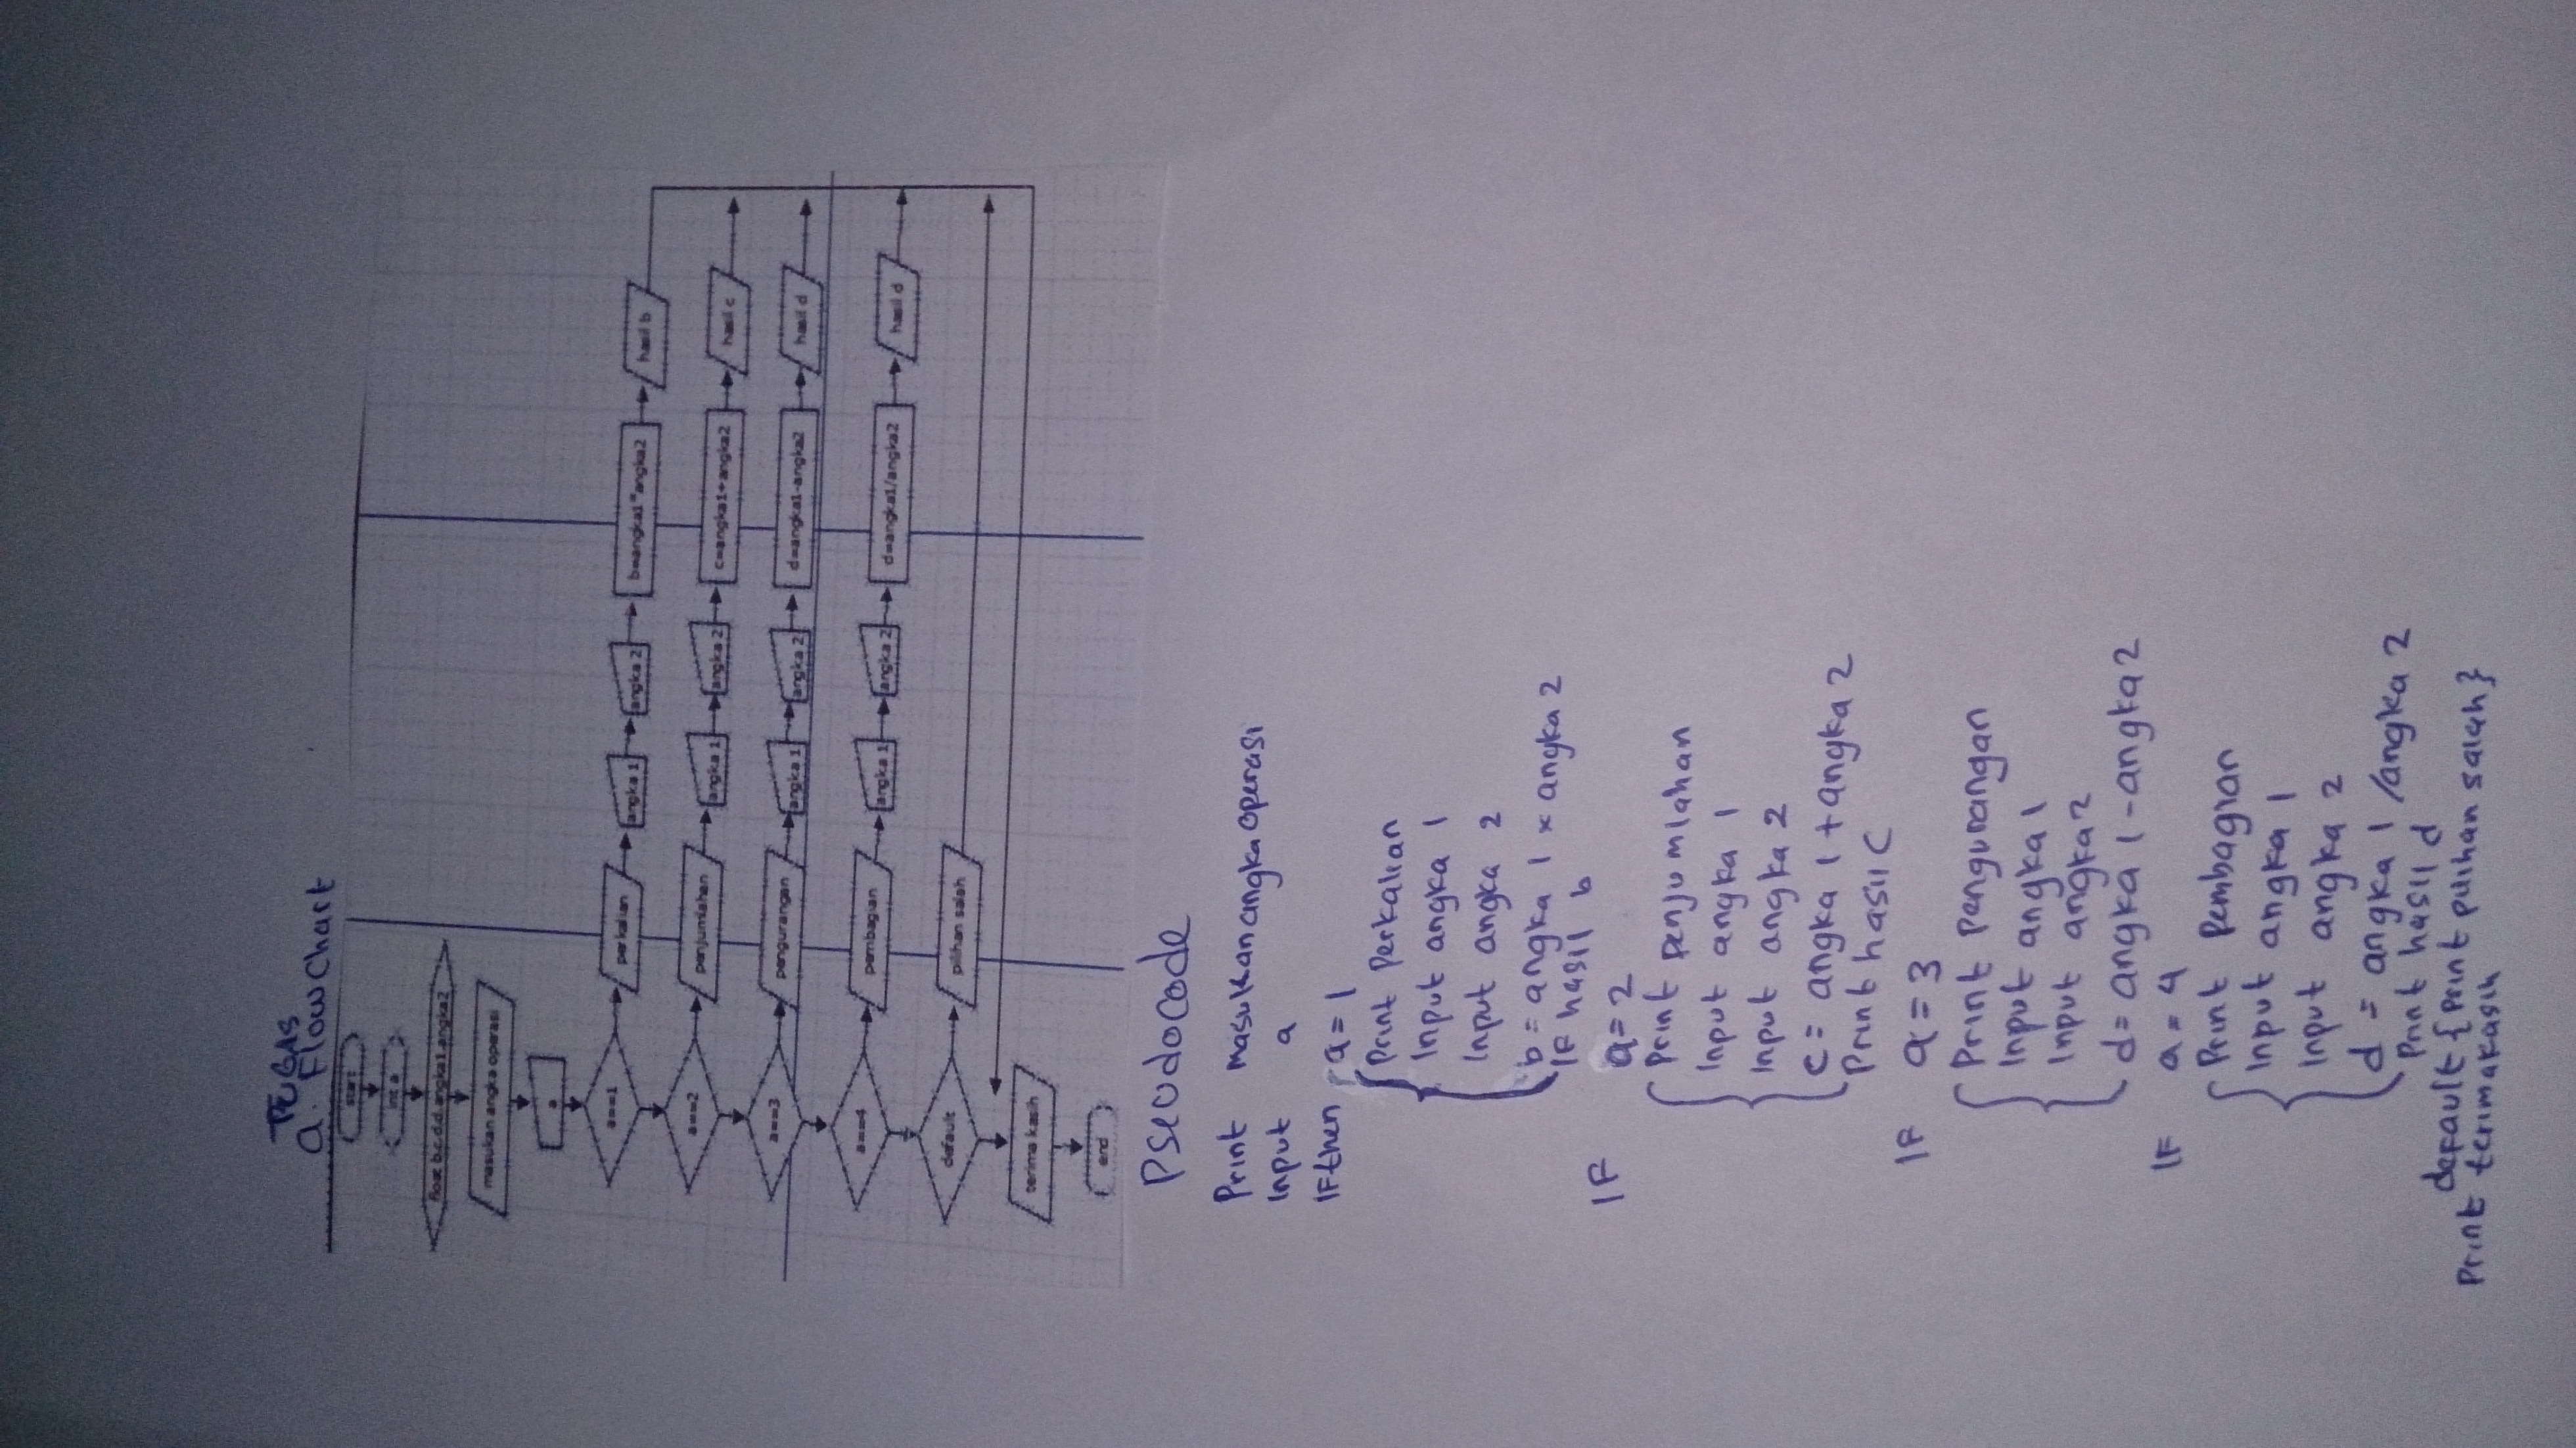 TUGAS
a. Flowchart
start
int a
float b,c,d,d,angka1,angka2
masukan angka operasi
a
a==1 perkalian angka 1 angka 2 b=angka1*angka2 hasil b
a==2 penjumlahan angka 1 angka 2 c=angka1+angka2 hasil c
a==3 pengurangan angka 1 angka 2 d=angka1-angka2 hasil d
a==4 pembagian angka 1 angka 2 d=angka1/angka2 hasil d
default pilihan salah
terima kasih
end
Pseudocode
Print masukkan angka operasi
Input a
IF then a = 1
Print Perkalian
Input angka 1
Input angka 2
b = angka 1 x angka 2
IF hasil b
IF a = 2
Print penjumlahan
Input angka 1
Input angka 2
c = angka 1 + angka 2
Print hasil c
IF a = 3
Print pengurangan
Input angka 1
Input angka 2
d = angka 1 - angka 2
IF a = 4
Print Pembagian
Input angka 1
Input angka 2
d = angka 1 / angka 2
Print hasil d
default { print pilihan salah }
Print terimakasih